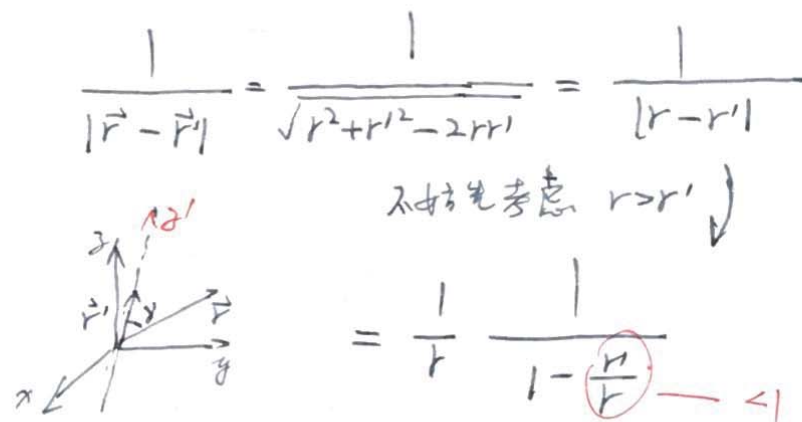 1/|r⃗ - r⃗'| = 1/√(r²+r'²-2rr') = 1/|r-r'|
不妨先考虑 r>r'
z'
z
r⃗' γ r⃗
= 1/r 1/(1 - r'/r) — <1
x y